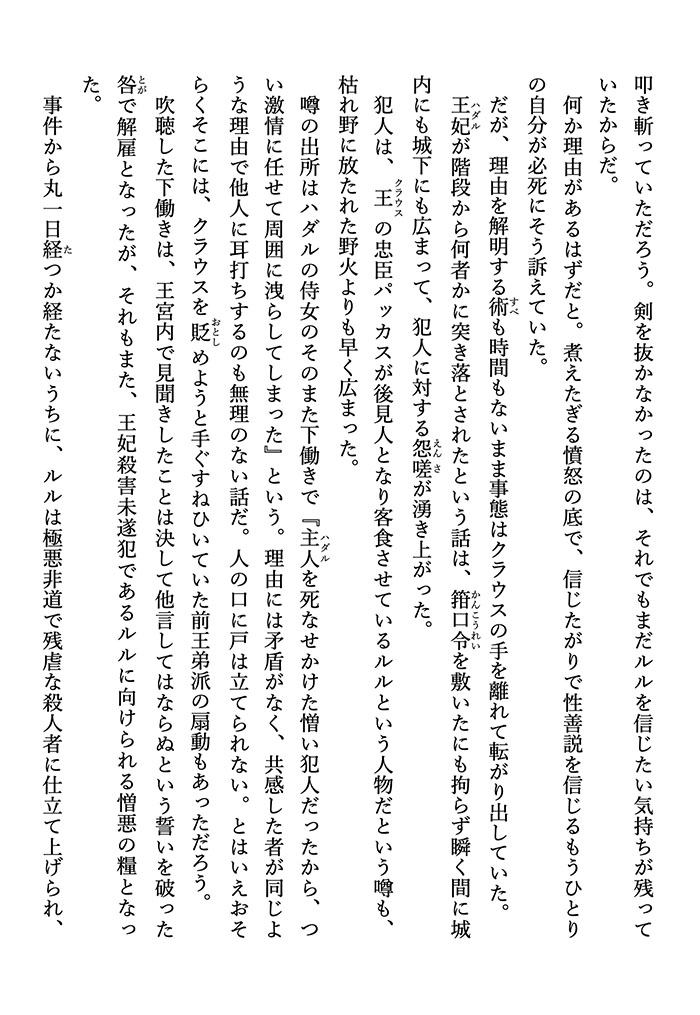 叩き斬っていただろう。剣を抜かなかったのは、それでもまだルルを信じたい気持ちが残って
いたからだ。
何か理由があるはずだと。煮えたぎる憤怒の底で、信じたがりで性善説を信じるもうひとり
の自分が必死にそう訴えていた。
だが、理由を解明する術すべも時間もないまま事態はクラウスの手を離れて転がり出していた。
王妃ハダルが階段から何者かに突き落とされたという話は、箝口令かんこうれいを敷いたにも拘らず瞬く間に城
内にも城下にも広まって、犯人に対する怨嗟えんさが湧き上がった。
犯人は、王クラウスの忠臣パッカスが後見人となり客食させているルルという人物だという噂も、
枯れ野に放たれた野火よりも早く広まった。
噂の出所はハダルの侍女のそのまた下働きで『主人ハダルを死なせかけた憎い犯人だったから、つ
い激情に任せて周囲に洩らしてしまった』という。理由には矛盾がなく、共感した者が同じよ
うな理由で他人に耳打ちするのも無理のない話だ。人の口に戸は立てられない。とはいえおそ
らくそこには、クラウスを貶おとしめようと手ぐすねひいていた前王弟派の扇動もあっただろう。
吹聴した下働きは、王宮内で見聞きしたことは決して他言してはならぬという誓いを破った
咎とがで解雇となったが、それもまた、王妃殺害未遂犯であるルルに向けられる憎悪の糧となっ
た。
事件から丸一日経たつか経たないうちに、ルルは極悪非道で残虐な殺人者に仕立て上げられ、